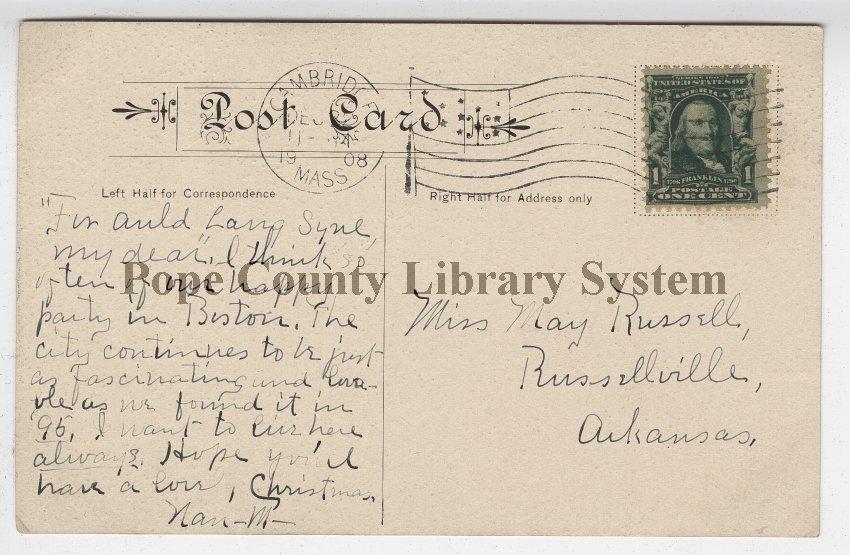 Post Card
CAMBRIDGE
DEC
11-
19 08
MASS
SERIES 1902
UNITED STATES OF
AMERICA
1 1706 FRANKLIN 1790 1
POSTAGE
ONE CENT
Left Half for Correspondence
Right Half for Address only
"For Auld Lang Syne,
my dear". I think so
often of our happy
party in Boston. The
city continues to be just
as fascinating and lova-
ble as we found it in
95. I want to live here
always. Hope you'll
have a lovely Christmas.
Nan-M-
Miss May Russell,
Russellville,
Arkansas,
Pope County Library System